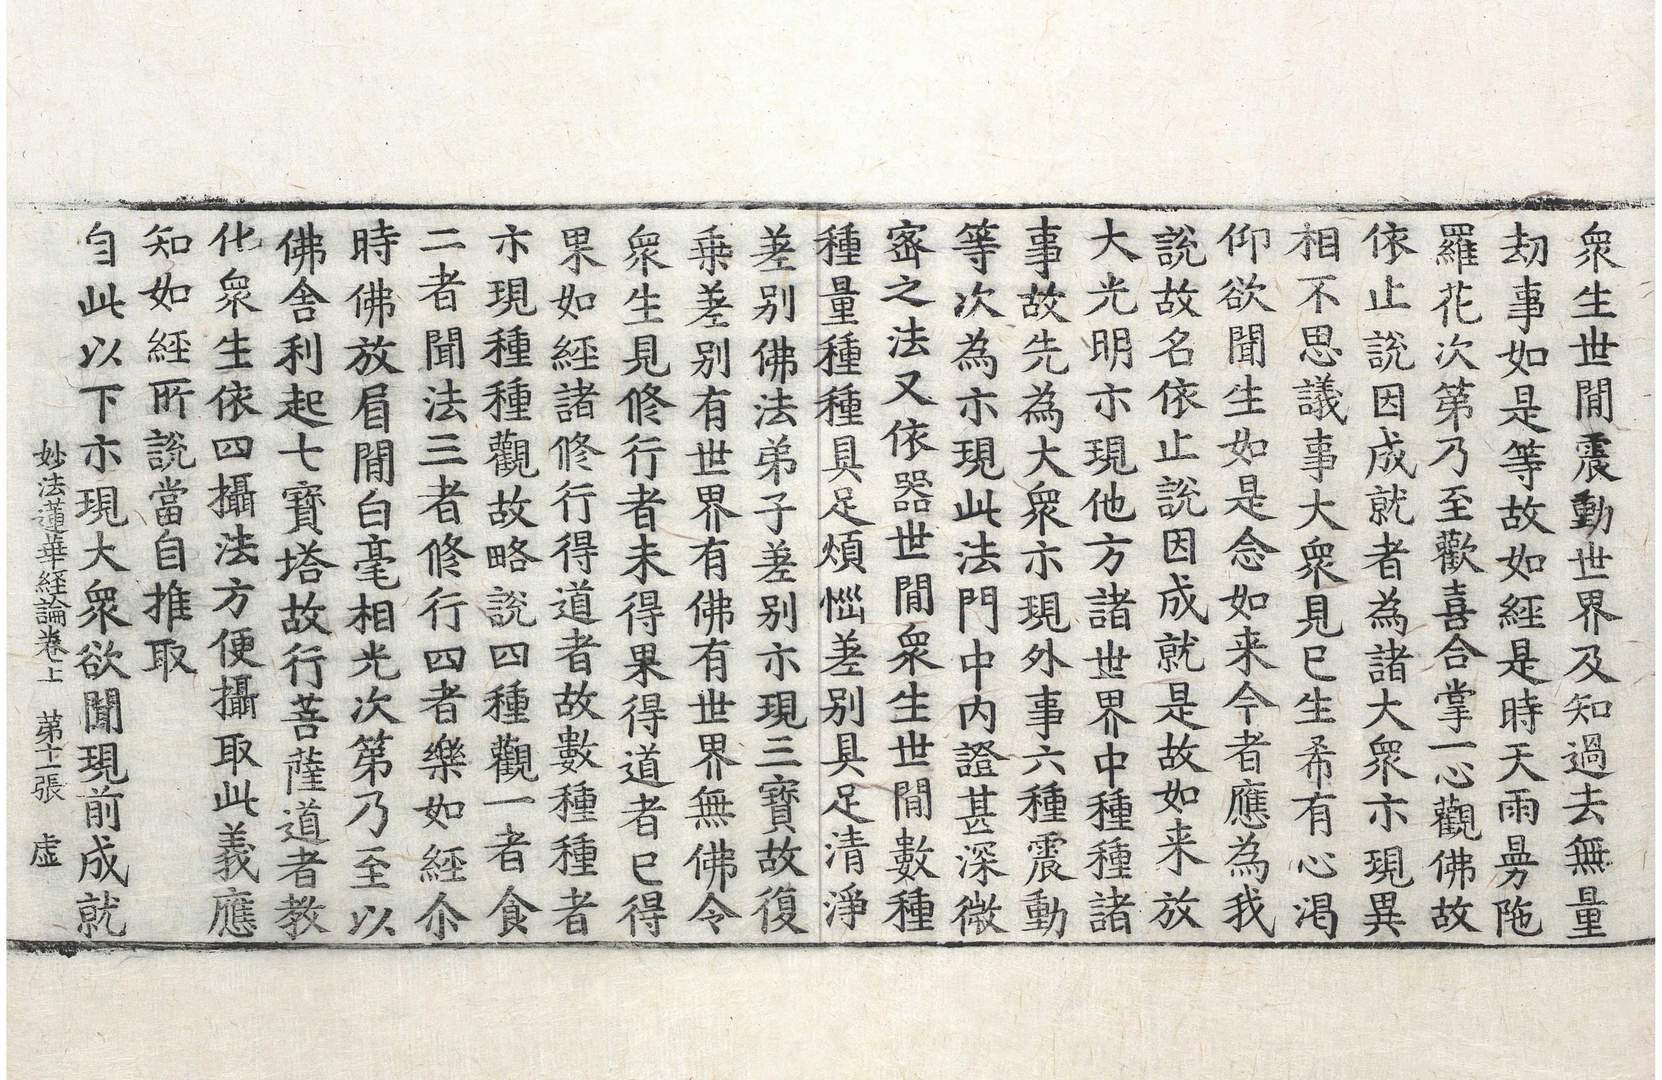 衆生世間震動世界及知過去無量
劫事如是等故如經是時天雨㬅陁
羅花次第乃至歡喜合掌一心觀佛故
依止說因成就者為諸大衆示現異
相不思議事大衆見已生希有心渴
仰欲聞生如是念如来今者應為我
說故名依止說因成就是故如来放
大光明示現他方諸世界中種種諸
事故先為大衆示現外事六種震動
等次為示現此法門中內證甚深微
密之法又依器世間衆生世間數種
種量種種具足煩惱差别具足清淨
差别佛法弟子差别示現三寶故復
乗差别有世界有佛有世界無佛令
衆生見修行者未得果得道者已得
果如經諸修行得道者故數種種者
示現種種觀故略說四種觀一者食
二者聞法三者修行四者樂如經尒
時佛放眉間白毫相光次第乃至以
佛舍利起七寶塔故行菩薩道者教
化衆生依四攝法方便攝取此義應
知如經所說當自推取
自此以下示現大衆欲聞現前成就
妙法蓮華經論卷上 第十一張 虛